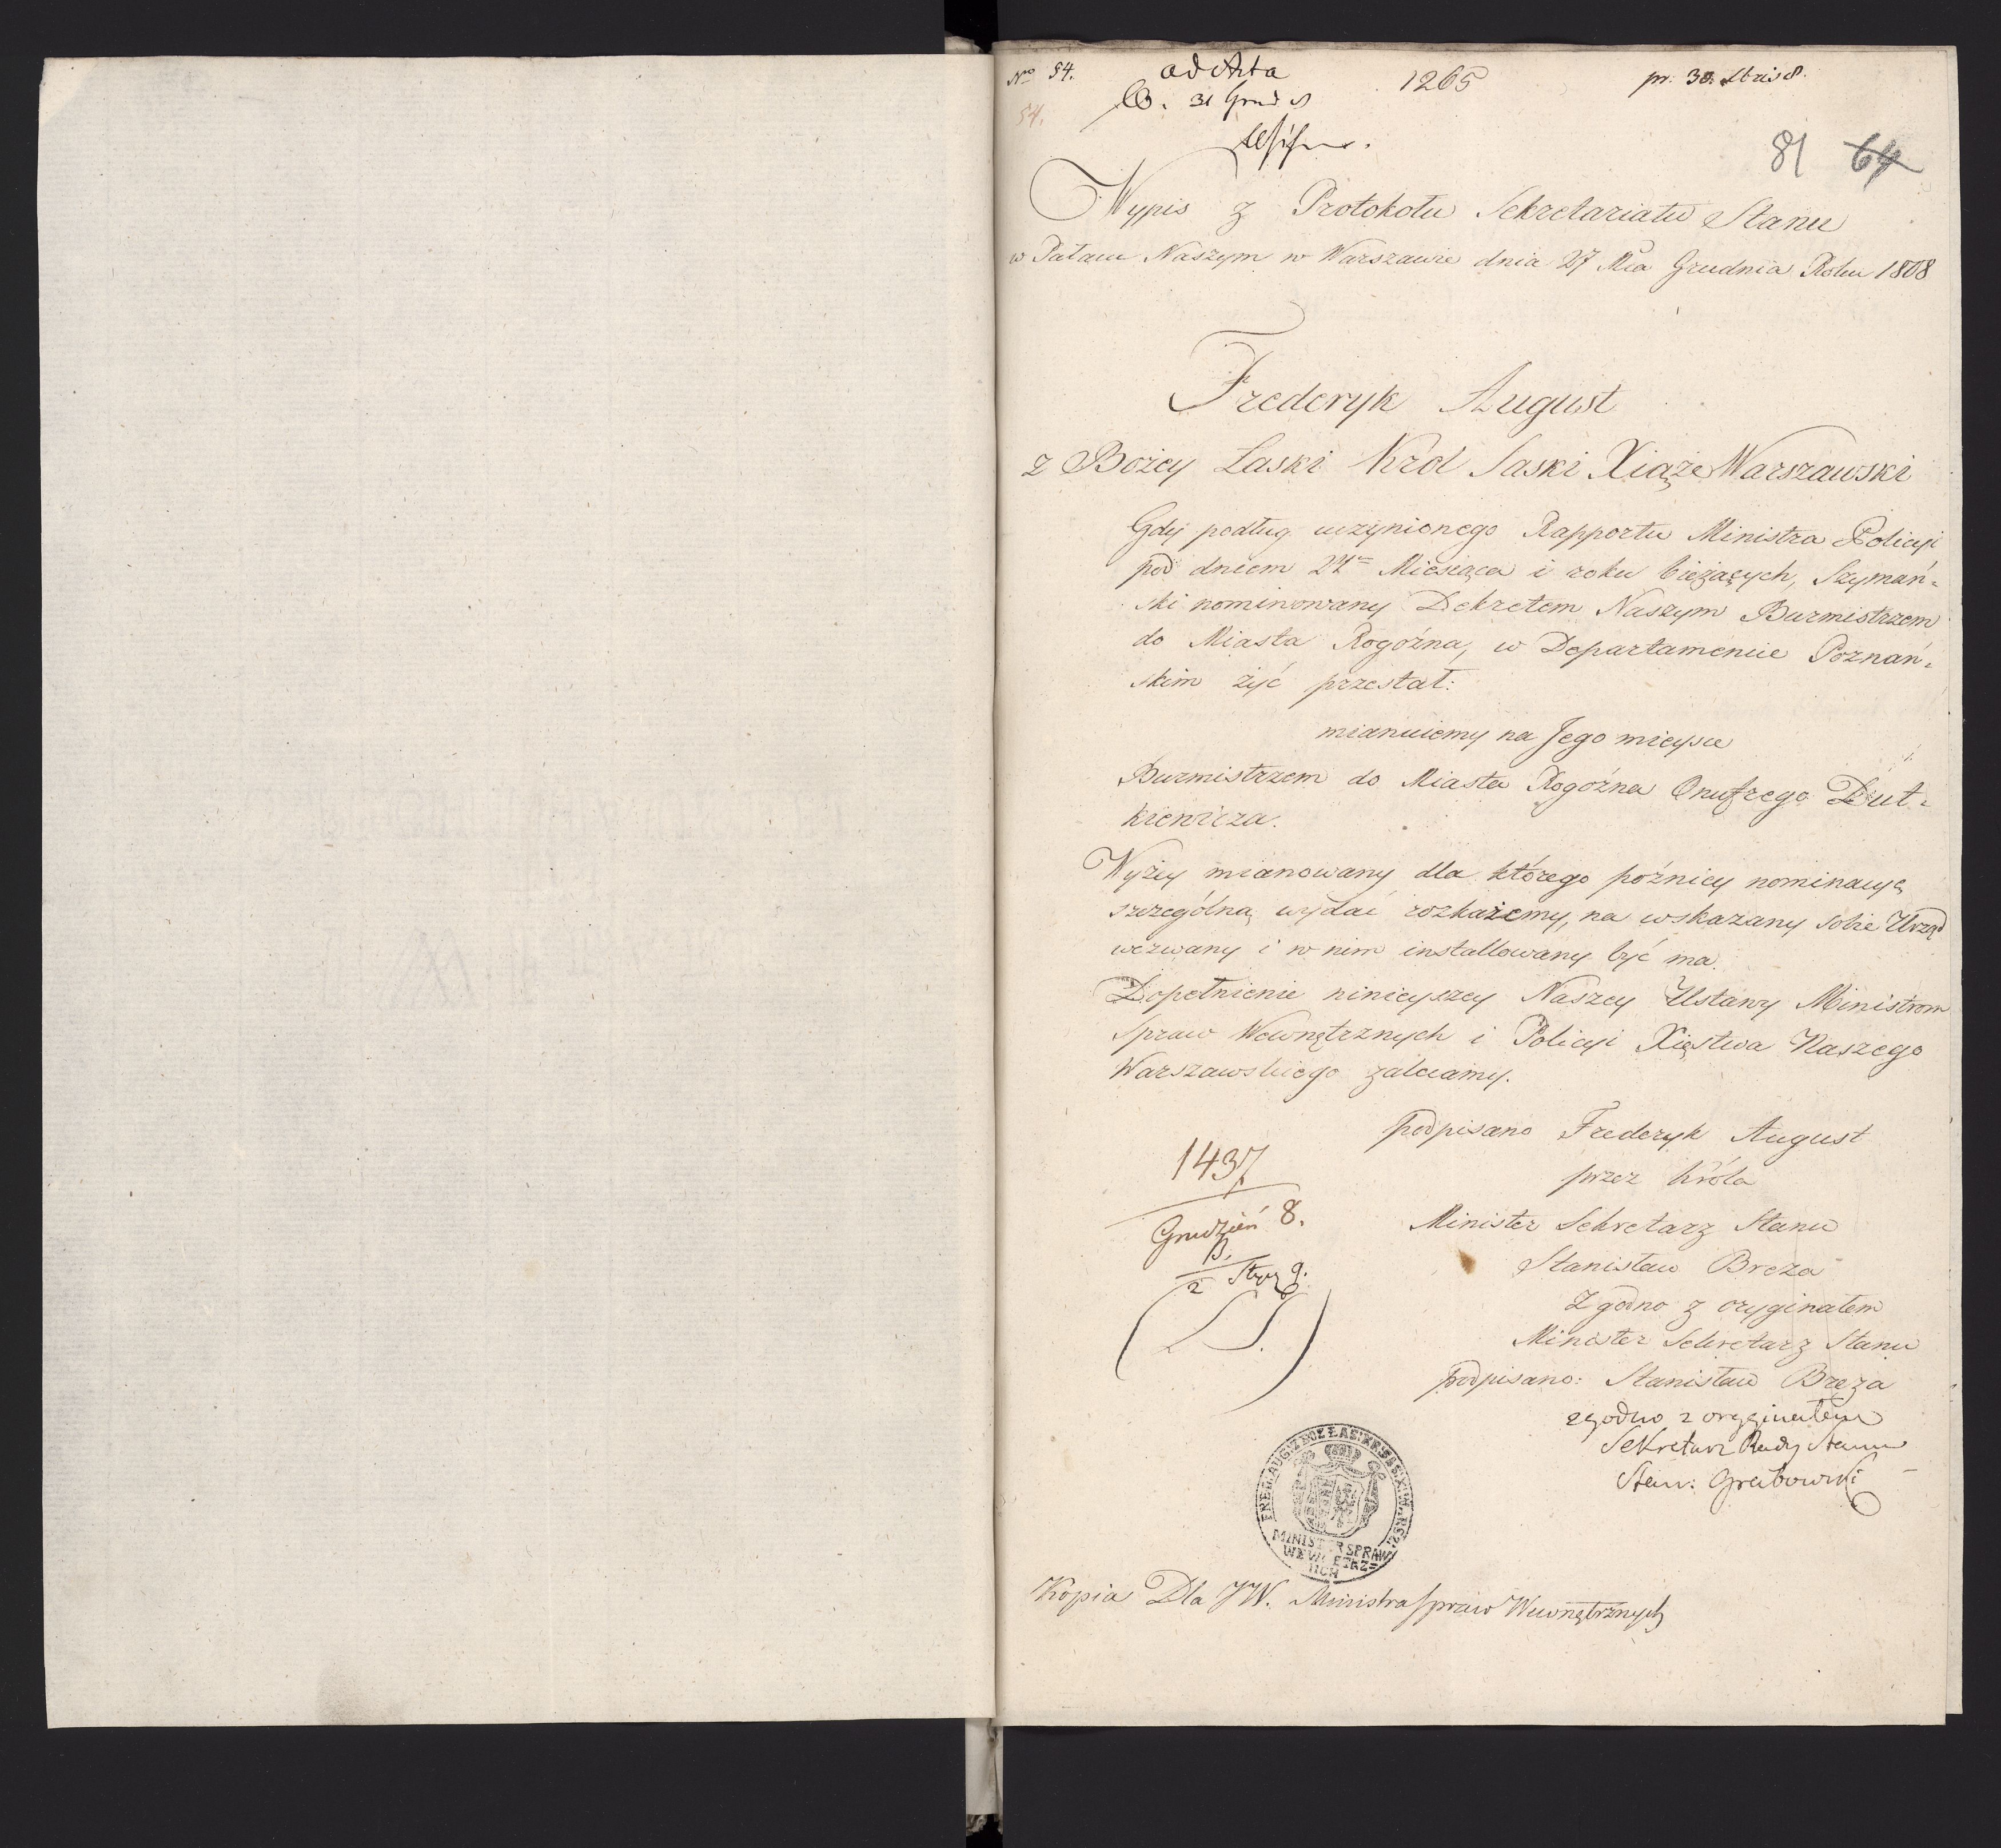 Nro 54. ad Acta 1265 pr. 30. Xbris 8.
54. B. 31 Grud 8
81 64
Wypis z Protokołu Sekretariatu Stanu
w Pałacu Naszym w Warszawie dnia 27 Mca Grudnia Roku 1808
Frederyk August
z Bożey Łaski Krol Saski Xiąże Warszawski
Gdy podług uczynionego Rapportu Ministra Policyi
pod dniem Miesiąca i roku bieżących, Szymań-
ski nominowany Dekretem Naszym Burmistrzem
do Miasta Rogóźna, w Departamencie Poznań-
skim żyć przestał:
mianuiemy na Jego mieysce
Burmistrzem do Miasta Rogóźna Onufrego Dut-
kiewicza.
Wyżey mianowany dla którego późniey nominacyą
szczególną wydać rozkażemy, na wskazany sobie Urząd
wezwany i w nim installowany być ma.
Dopełnienie ninieyszey Naszey Ustawy Ministrom
Spraw Wewnętrznych i Policyi Xięstwa Naszego
Warszawskiego zalecamy.
podpisano Frederyk August
przez Króla
Minister Sekretarz Stanu
Stanisław Breza
Zgodno z oryginałem
Minister Sekretarz Stanu
podpisano: Stanisław Bręza
zgodno z oryginałem
Sekretarz Rady Stanu
Stan: Grabowski
1437
Grudzień 8.
B.
2 Stycz 9.
FRED. AUG. Z BOZ. ŁAS. KR. SAS. X. WARSZ.
MINISTER SPRAW
WEWNĘTRZ=
NCH
Kopia Dla JW. Ministra Spraw Wewnętrznych